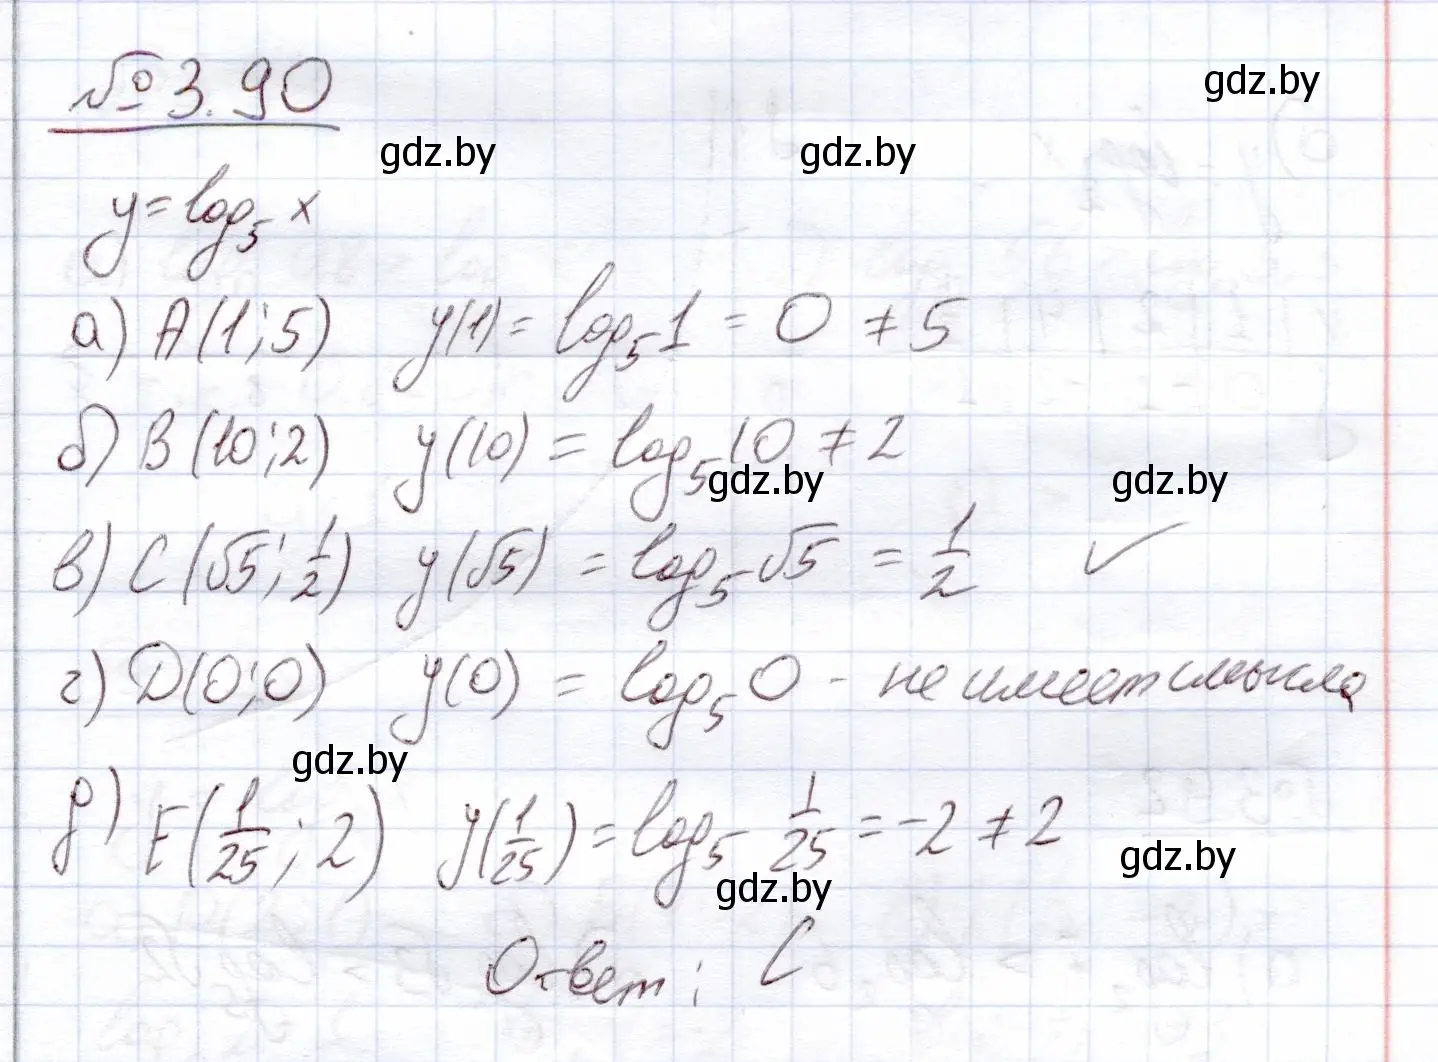 №3.90
gdz.by
gdz.by gdz.by
y = log₅ x
а) A(1; 5) y(1) = log₅1 = 0 ≠ 5
б) B(10; 2) y(10) = log₅10 ≠ 2
gdz.by gdz.by
в) C(√5; 1/2) y(√5) = log₅√5 = 1/2 ✓
г) D(0; 0) y(0) = log₅0 - не имеет смысла
gdz.by
д) E(1/25; 2) y(1/25) = log₅ 1/25 = -2 ≠ 2
gdz.by
gdz.by
Ответ: C